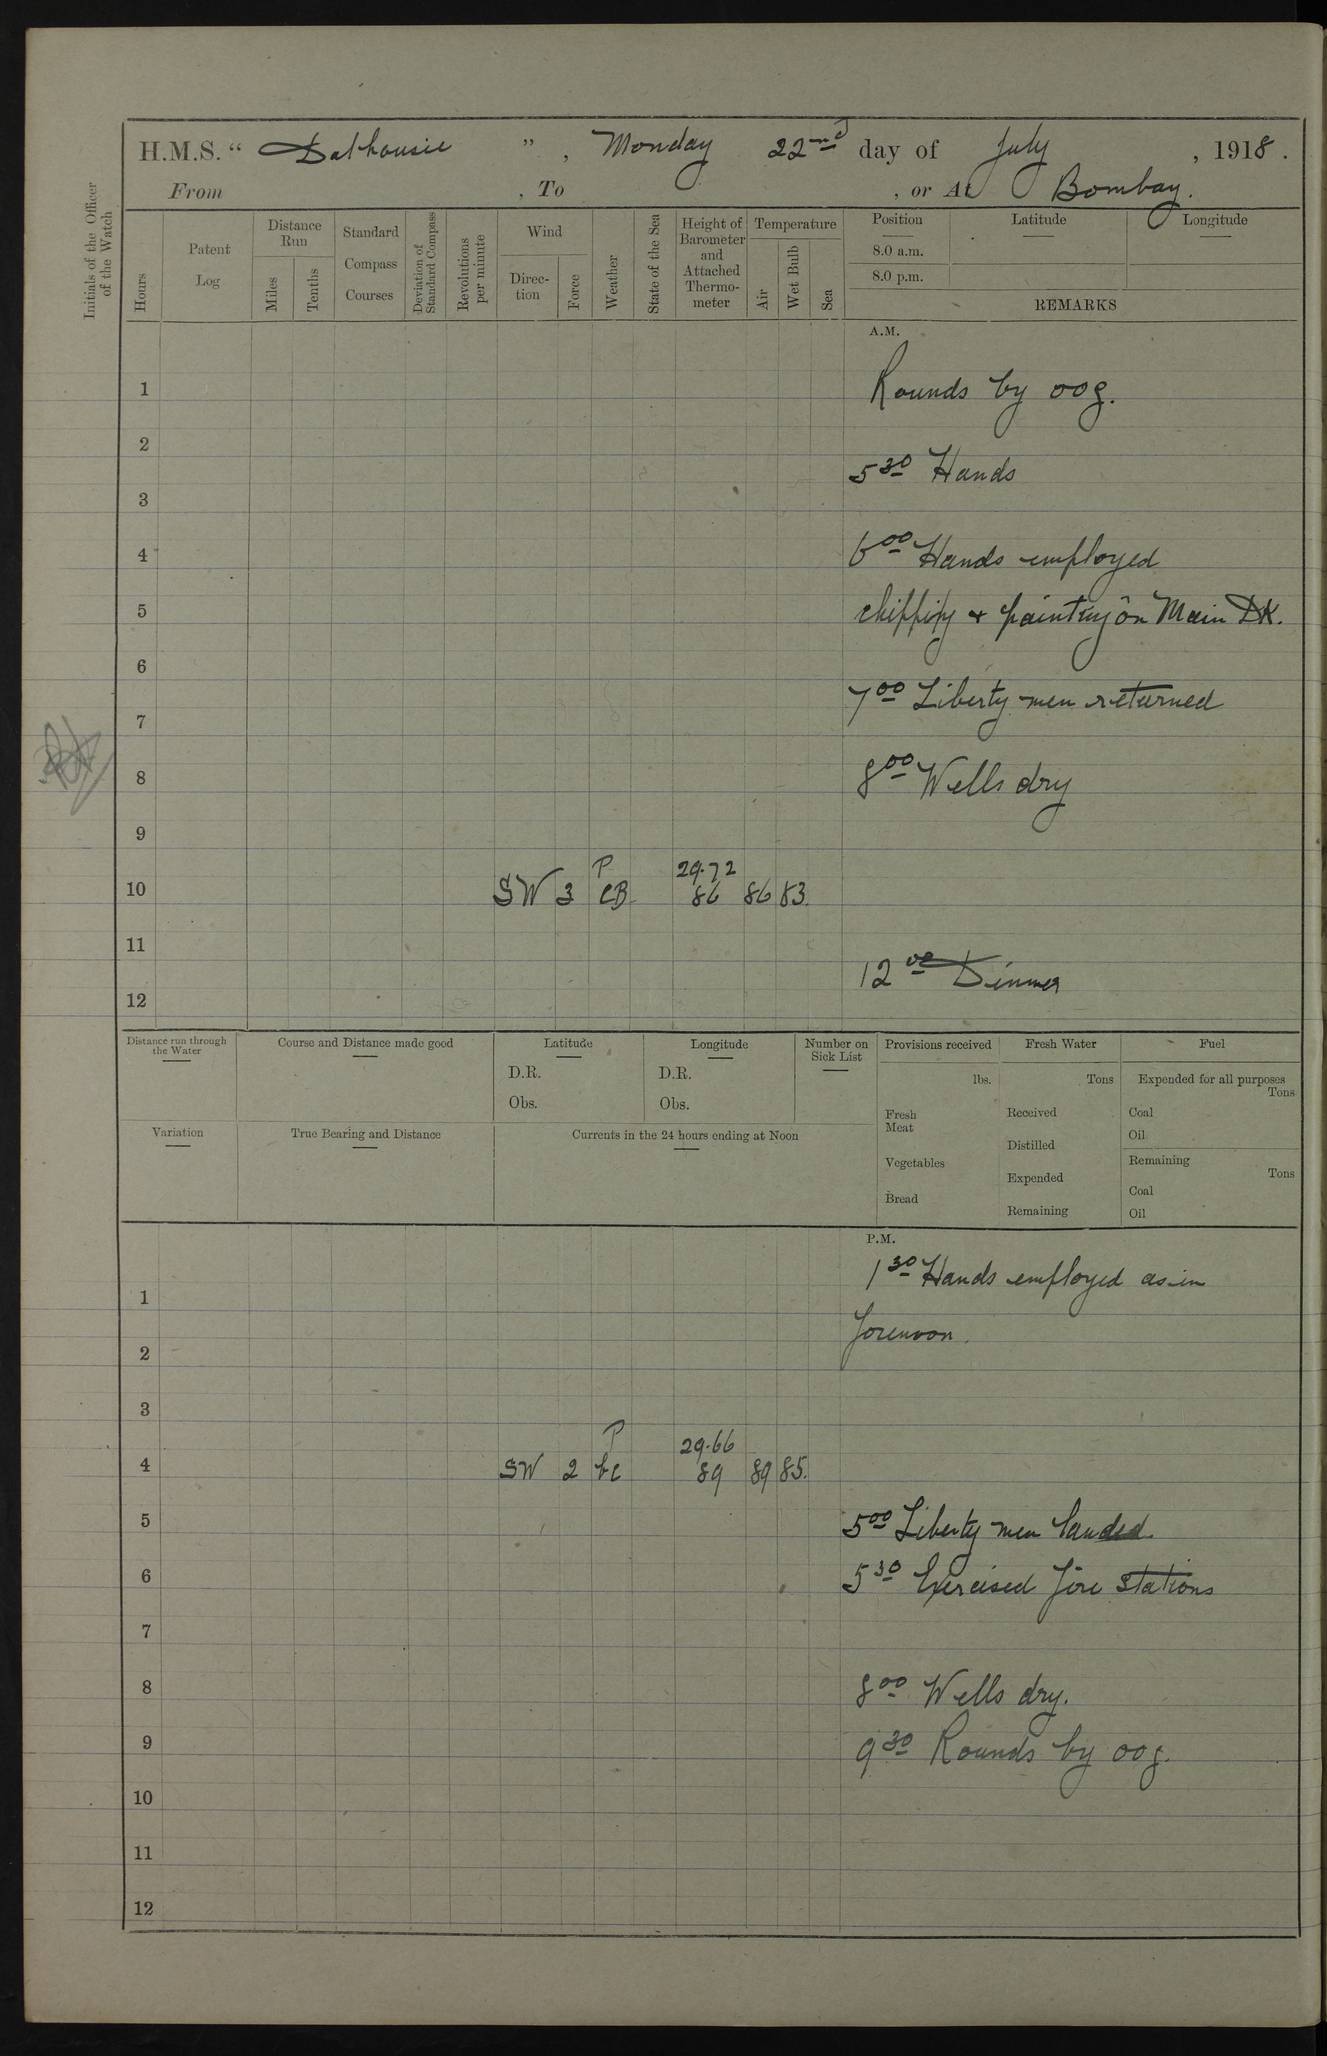 H.M.S. “ Dalhousie ” , Monday 22nd day of July , 1918 .
From , To , or At Bombay.
Initials of the Officer of the Watch
Hours
Patent Log
Distance Run
Miles
Tenths
Standard Compass Courses
Deviation of Standard Compass
Revolutions per minute
Wind
Direc-tion
Force
Weather
State of the Sea
Height of Barometer and Attached Thermo-meter
Temperature
Air
Wet Bulb
Sea
Position
Latitude
Longitude
8.0 a.m.
8.0 p.m.
REMARKS
A.M.
1 Rounds by oog.
2
5 30 Hands
3
4 6 00 Hands employed
5 chipping & painting on Main DK.
6
7 00 Liberty men returned
7
8 8 00 Wells dry
9
P 29.72
10 SW 3 CB 86 86 83.
11
12 00 Dinner
12
Distance run through the Water
Course and Distance made good
Latitude
D.R.
Obs.
Longitude
D.R.
Obs.
Number on Sick List
Provisions received
lbs.
Fresh Meat
Vegetables
Bread
Fresh Water
Tons
Received
Distilled
Expended
Remaining
Fuel
Expended for all purposes
Tons
Coal
Oil
Remaining
Tons
Coal
Oil
Variation
True Bearing and Distance
Currents in the 24 hours ending at Noon
P.M.
1 30 Hands employed as in
1
forenoon.
2
3
P 29.66
4 SW 2 bc 89 89 85.
5 5 00 Liberty men landed.
6 5 30 Exercised fire stations
7
8 8 00 Wells dry.
9 9 30 Rounds by oog.
10
11
12